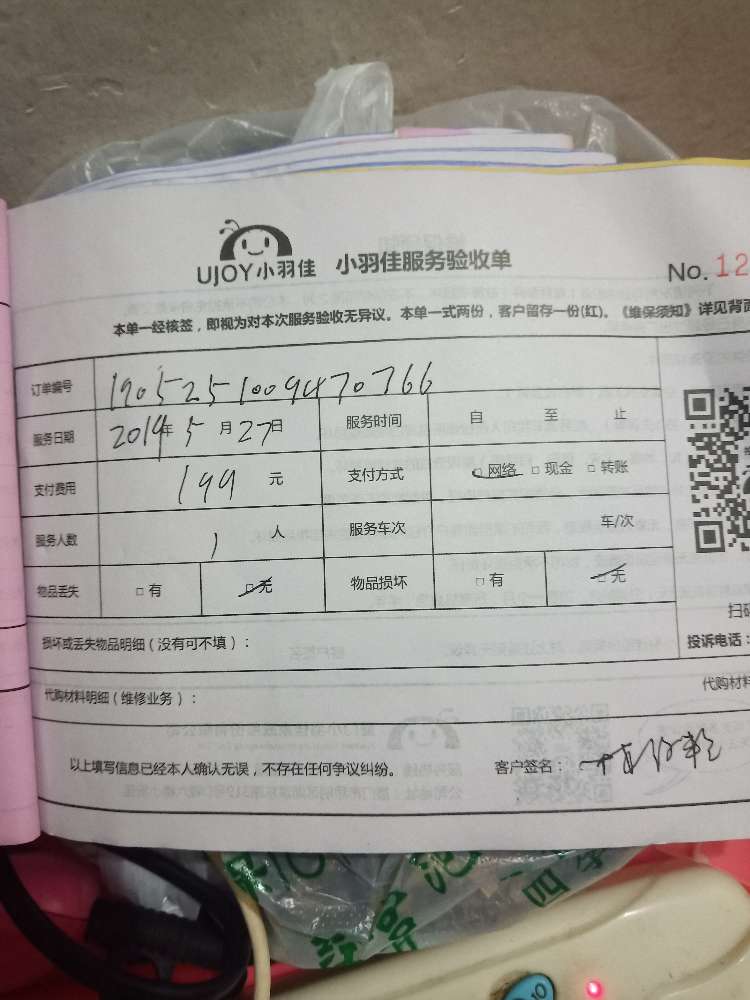 UJOY小羽佳 小羽佳服务验收单
No. 12
本单一经核签，即视为对本次服务验收无异议。本单一式两份，客户留存一份(红)。《维保须知》详见背面
订单编号 1905251009470766
服务日期 2019年5月27日 服务时间 自 至 止
支付费用 199 元 支付方式 □网络 □现金 □转账
服务人数 1 人 服务车次 车/次
物品丢失 □有 □无 物品损坏 □有 □无
扫码
损坏或丢失物品明细（没有可不填）：
投诉电话：
代购材料明细（维修业务）： 代购材料
以上填写信息已经本人确认无误，不存在任何争议纠纷。 客户签名：